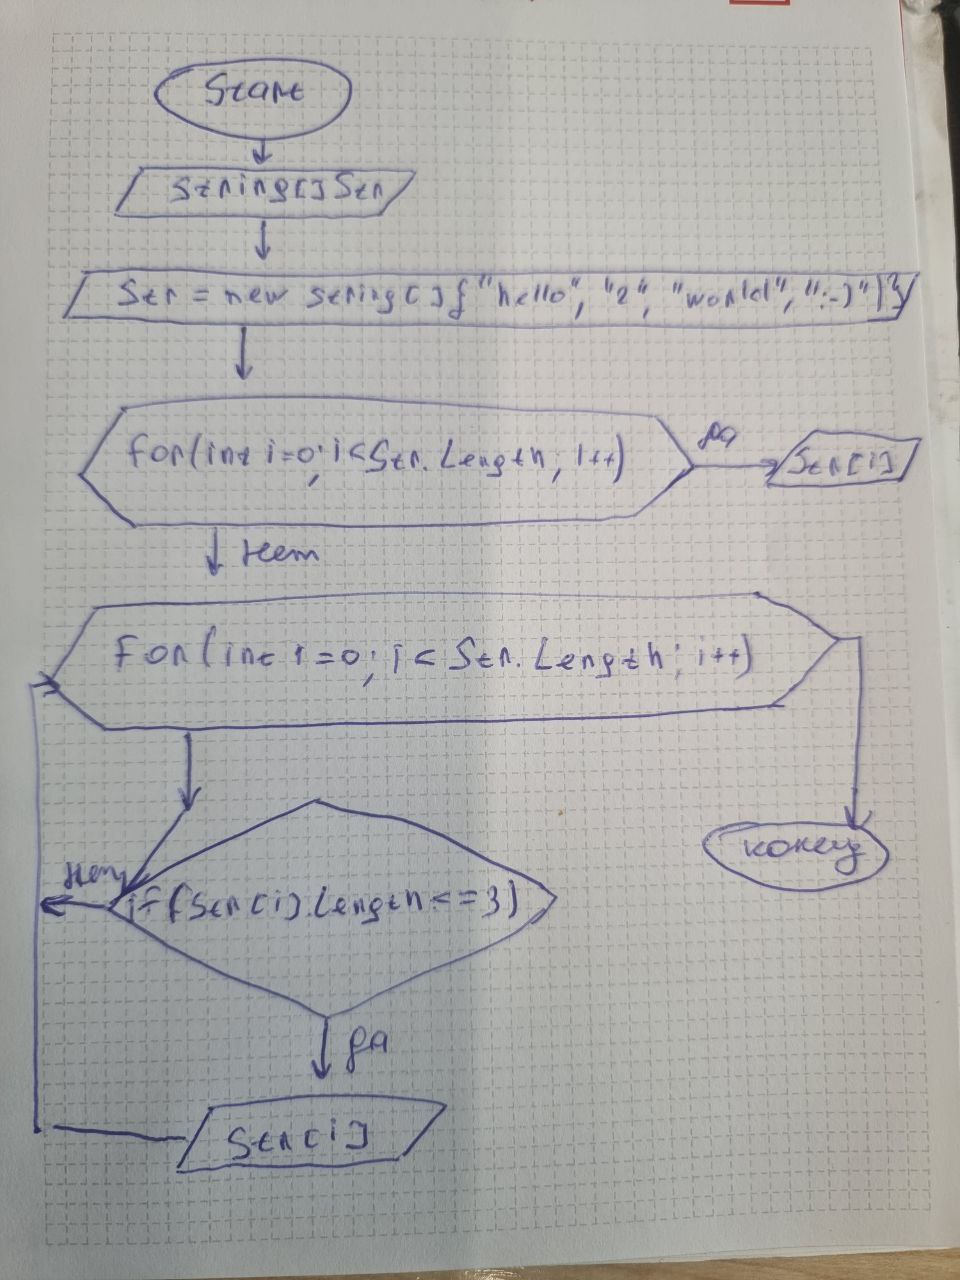 Start
String[] Str
Str = new string[]{"hello", "2", "world", ":-)"}
for(int i=0; i<Str.Length; i++)
да
Str[i]
нет
for(int i=0; i< Str.Length; i++)
конец
нет
if(Str[i].Length<=3)
да
Str[i]